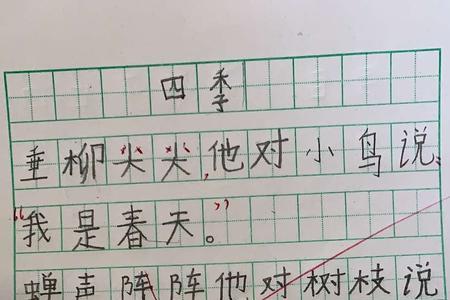 四季
垂柳尖尖,他对小鸟说、
“我是春天。”
蝉声阵阵他对树枝说